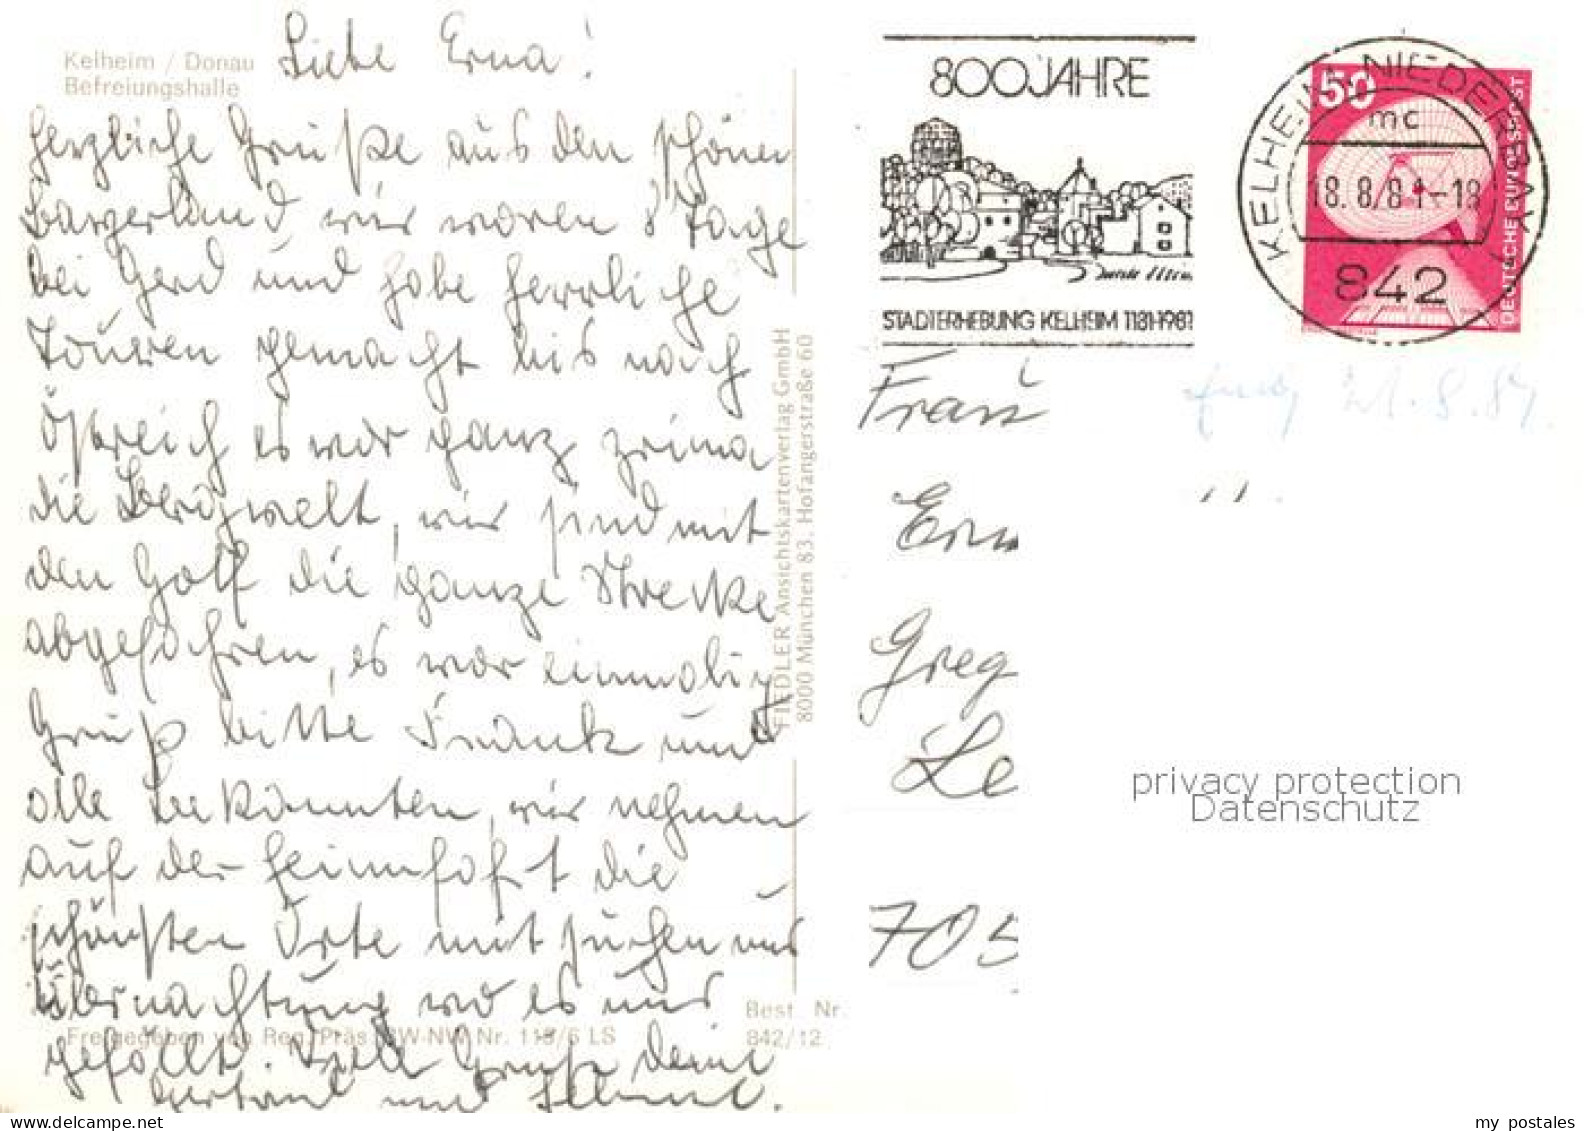 Kelheim / Donau
Befreiungshalle
Liebe Erna!
herzliche Grüße aus den schönen
Bayerland, wir waren 8 Tage
bei Gerd und habe herrliche
Touren gemacht bis nach
Östreich es war ganz prima
die Bergwelt, wir sind mit
den Golf die ganze Strecke
abgefahren, es war einmalig
Gruß bitte Frank und
alle Bekannten, wir nehmen
auf der Heimfahrt die
schönsten Orte mit suchen uns
Übernachtung wo es uns
gefällt. Viele Grüße deine
und Helmut.
Freigegeben von Reg. Präs. BW-NW Nr. 113/6 LS
Best. Nr.
842/12
FIEDLER Ansichtskartenverlag GmbH
8000 München 83. Hofangerstraße 60
800 JAHRE
STADTERHEBUNG KELHEIM 1181-1981
KELHEIM, NIEDERBAY
mc
18.8.81-18
842
50
DEUTSCHE BUNDESPOST
Frau
21.8.81.
Ern
Greg
Le
705
privacy protection
Datenschutz
my postales